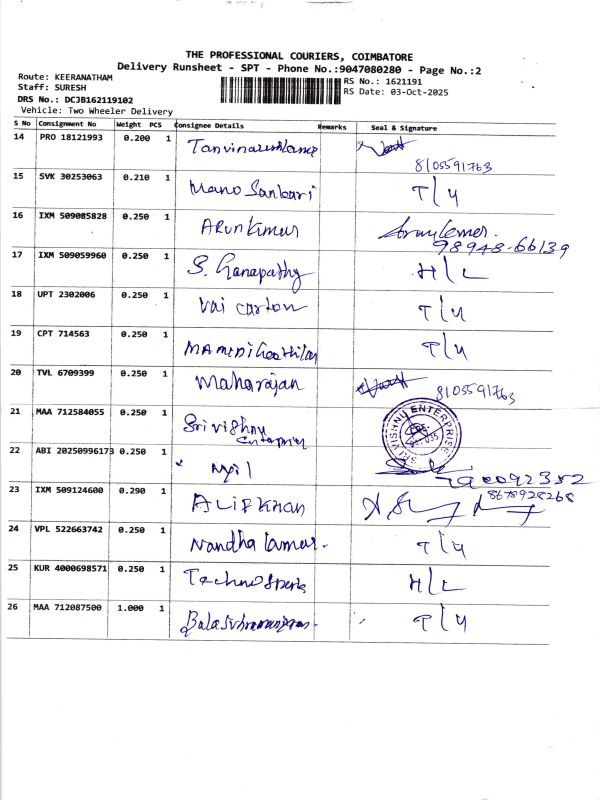 THE PROFESSIONAL COURIERS, COIMBATORE
Delivery Runsheet - SPT - Phone No.:9047080280 - Page No.:2
Route: KEERANATHAM
Staff: SURESH
DRS No.: DCJB162119102
Vehicle: Two Wheeler Delivery
RS No.: 1621191
RS Date: 03-Oct-2025
S No Consignment No Weight PCS Consignee Details Remarks Seal & Signature
14 PRO 18121993 0.200 1
8105591763
15 SVK 30253063 0.210 1 Mano Sankari T/4
16 IXM 509085828 0.250 1 Arun Kumar
98948-66139
17 IXM 509059960 0.250 1 S. Ganapathy H/L
18 UPT 2302006 0.250 1 Vai carton T/4
19 CPT 714563 0.250 1 T/4
20 TVL 6709399 0.250 1 Maharajan 8105591763
21 MAA 712584055 0.250 1 Sri vishnu
SRI VISHNU ENTERPRISE
22 ABI 20250996173 0.250 1
23 IXM 509124600 0.290 1 ALIFKHAN 8678928268
24 VPL 522663742 0.250 1 Nandha kumar. T/4
25 KUR 4000698571 0.250 1 Techno sports H/L
26 MAA 712087500 1.000 1 T/4